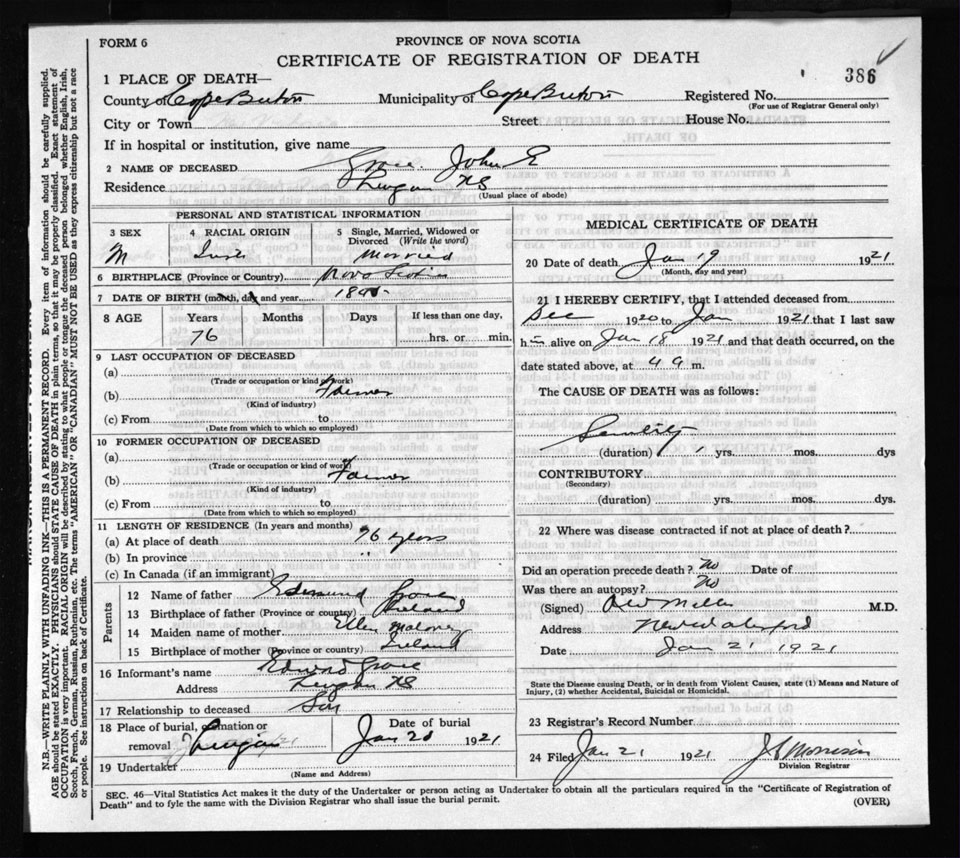 FORM 6
PROVINCE OF NOVA SCOTIA
CERTIFICATE OF REGISTRATION OF DEATH
386
1 PLACE OF DEATH—
County of Cape Breton Municipality of Cape Breton Registered No.
(For use of Registrar General only)
City or Town Street House No.
If in hospital or institution, give name
2 NAME OF DECEASED John E
Residence Lingan NS
(Usual place of abode)
PERSONAL AND STATISTICAL INFORMATION
3 SEX 4 RACIAL ORIGIN 5 Single, Married, Widowed or Divorced (Write the word)
M Irish Married
6 BIRTHPLACE (Province or Country) Nova Scotia
7 DATE OF BIRTH (month, day and year
8 AGE Years Months Days If less than one day,
76 hrs. or min.
9 LAST OCCUPATION OF DECEASED
(a)
(Trade or occupation or kind of work)
(b) Farmer
(Kind of industry)
(c) From to
(Date from which to which so employed)
10 FORMER OCCUPATION OF DECEASED
(a)
(Trade or occupation or kind of work)
(b) Farmer
(Kind of industry)
(c) From to
(Date from which to which so employed)
11 LENGTH OF RESIDENCE (In years and months)
(a) At place of death 76 years
(b) In province "
(c) In Canada (if an immigrant)
Parents
12 Name of father Edmund
13 Birthplace of father (Province or country) Ireland
14 Maiden name of mother Ellen Maloney
15 Birthplace of mother (Province or country) Ireland
16 Informant's name Edward
Address Lingan NS
17 Relationship to deceased Son
18 Place of burial, cremation or removal Lingan
Date of burial Jan 20 1921
19 Undertaker
(Name and Address)
MEDICAL CERTIFICATE OF DEATH
20 Date of death Jan 19 1921
(Month, day and year)
21 I HEREBY CERTIFY, that I attended deceased from
Dec 1920 to Jan 1921 that I last saw
him alive on Jan 18 1921 and that death occurred, on the
date stated above, at 4 a m.
The CAUSE OF DEATH was as follows:
Senility
(duration) yrs. mos. dys
CONTRIBUTORY
(Secondary)
(duration) yrs. mos. dys.
22 Where was disease contracted if not at place of death?
Did an operation precede death? No Date of
Was there an autopsy? No
(Signed) Miller M.D.
Address New Waterford
Date Jan 21 1921
State the Disease causing Death, or in death from Violent Causes, state (1) Means and Nature of Injury, (2) whether Accidental, Suicidal or Homicidal.
23 Registrar's Record Number
24 Filed Jan 21 1921 Morrison
Division Registrar
SEC. 46—Vital Statistics Act makes it the duty of the Undertaker or person acting as Undertaker to obtain all the particulars required in the "Certificate of Registration of
Death" and to fyle the same with the Division Registrar who shall issue the burial permit. (OVER)
N.B.—WRITE PLAINLY WITH UNFADING INK—THIS IS A PERMANENT RECORD. Every item of information should be carefully supplied.
AGE should be stated EXACTLY. PHYSICIANS should STATE CAUSE OF DEATH in plain terms, so that it may be properly classified. Exact statement of
OCCUPATION is very important. RACIAL ORIGIN will be described by stating to what people or tongue the deceased person belonged whether English, Irish,
Scotch, French, German, Russian, Ruthenian, etc. The terms "AMERICAN" OR "CANADIAN" MUST NOT BE USED as they express citizenship but not a race
or people. See instructions on back of Certificate.